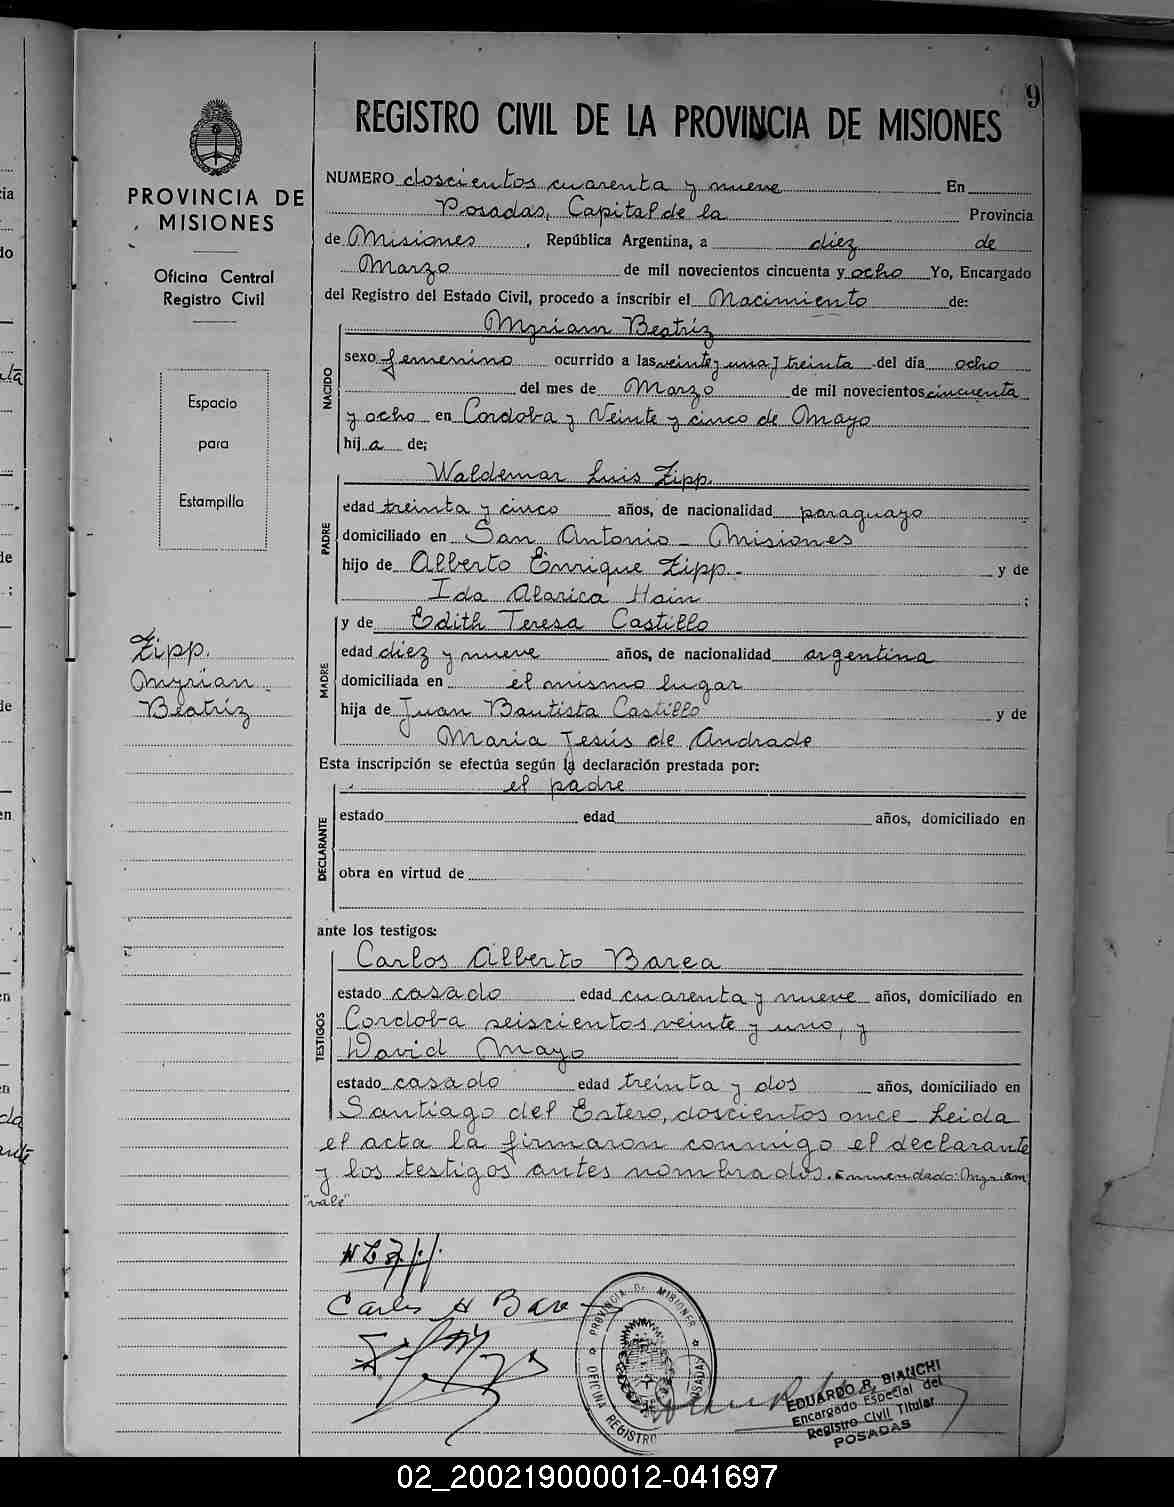 9
REGISTRO CIVIL DE LA PROVINCIA DE MISIONES
PROVINCIA DE
MISIONES
Oficina Central
Registro Civil
Espacio
para
Estampilla
Zipp.
Myrian
Beatriz
NUMERO doscientos cuarenta y nueve En
Posadas, Capital de la Provincia
de Misiones, República Argentina, a diez de
Marzo de mil novecientos cincuenta y ocho Yo, Encargado
del Registro del Estado Civil, procedo a inscribir el Nacimiento de:
NACIDO
Myriam Beatriz
sexo femenino ocurrido a las veinte y una y treinta del día ocho
del mes de Marzo de mil novecientos cincuenta
y ocho en Cordoba y Veinte y cinco de Mayo
hija de;
PADRE
Waldemar Luis Zipp.
edad treinta y cinco años, de nacionalidad paraguayo
domiciliado en San Antonio - Misiones
hijo de Alberto Enrique Zipp.- y de
Ida Alarica Hain ;
MADRE
y de Edith Teresa Castillo
edad diez y nueve años, de nacionalidad argentina
domiciliada en el mismo lugar
hija de Juan Bautista Castillo y de
Maria Jesús de Andrade
Esta inscripción se efectúa según la declaración prestada por:
DECLARANTE
el padre
estado edad años, domiciliado en
obra en virtud de
ante los testigos:
TESTIGOS
Carlos Alberto Barea
estado casado edad cuarenta y nueve años, domiciliado en
Cordoba seiscientos veinte y uno, y
David Mayo
estado casado edad treinta y dos años, domiciliado en
Santiago del Estero, doscientos once. Leida
el acta la firmaron conmigo el declarante
y los testigos antes nombrados. Enmendado: Myriam
"vale"
Carlos A Barea
PROVINCIA DE MISIONES
OFICINA REGISTRO
POSADAS
EDUARDO R. BIANCHI
Encargado Especial del
Registro Civil Titular
POSADAS
02_200219000012-041697